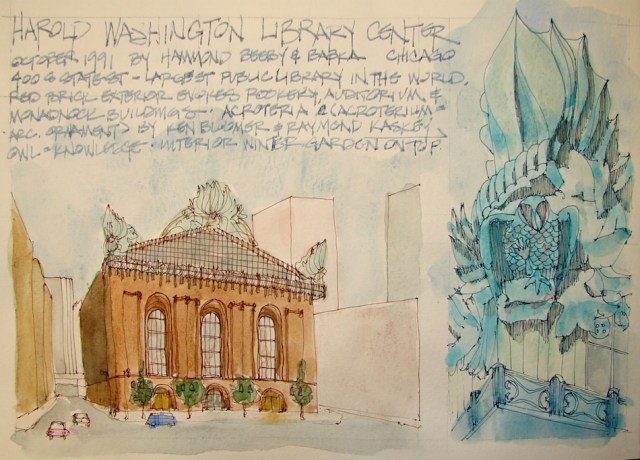 HAROLD WASHINGTON LIBRARY CENTER
OCTOBER 1991 BY HAMMOND BEEBY & BABKA CHICAGO
400 S STATE ST - LARGEST PUBLIC LIBRARY IN THE WORLD.
RED BRICK EXTERIOR EVOKES ROOKERY, AUDITORIUM &
MONADNOCK BUILDINGS. ACROTERIA (ACROTERIUM =
ARC. ORNAMENT) BY KEN BLOOMER & RAYMOND KASKEY
OWL = KNOWLEDGE - INTERIOR WINTER GARDEN ON TOP.